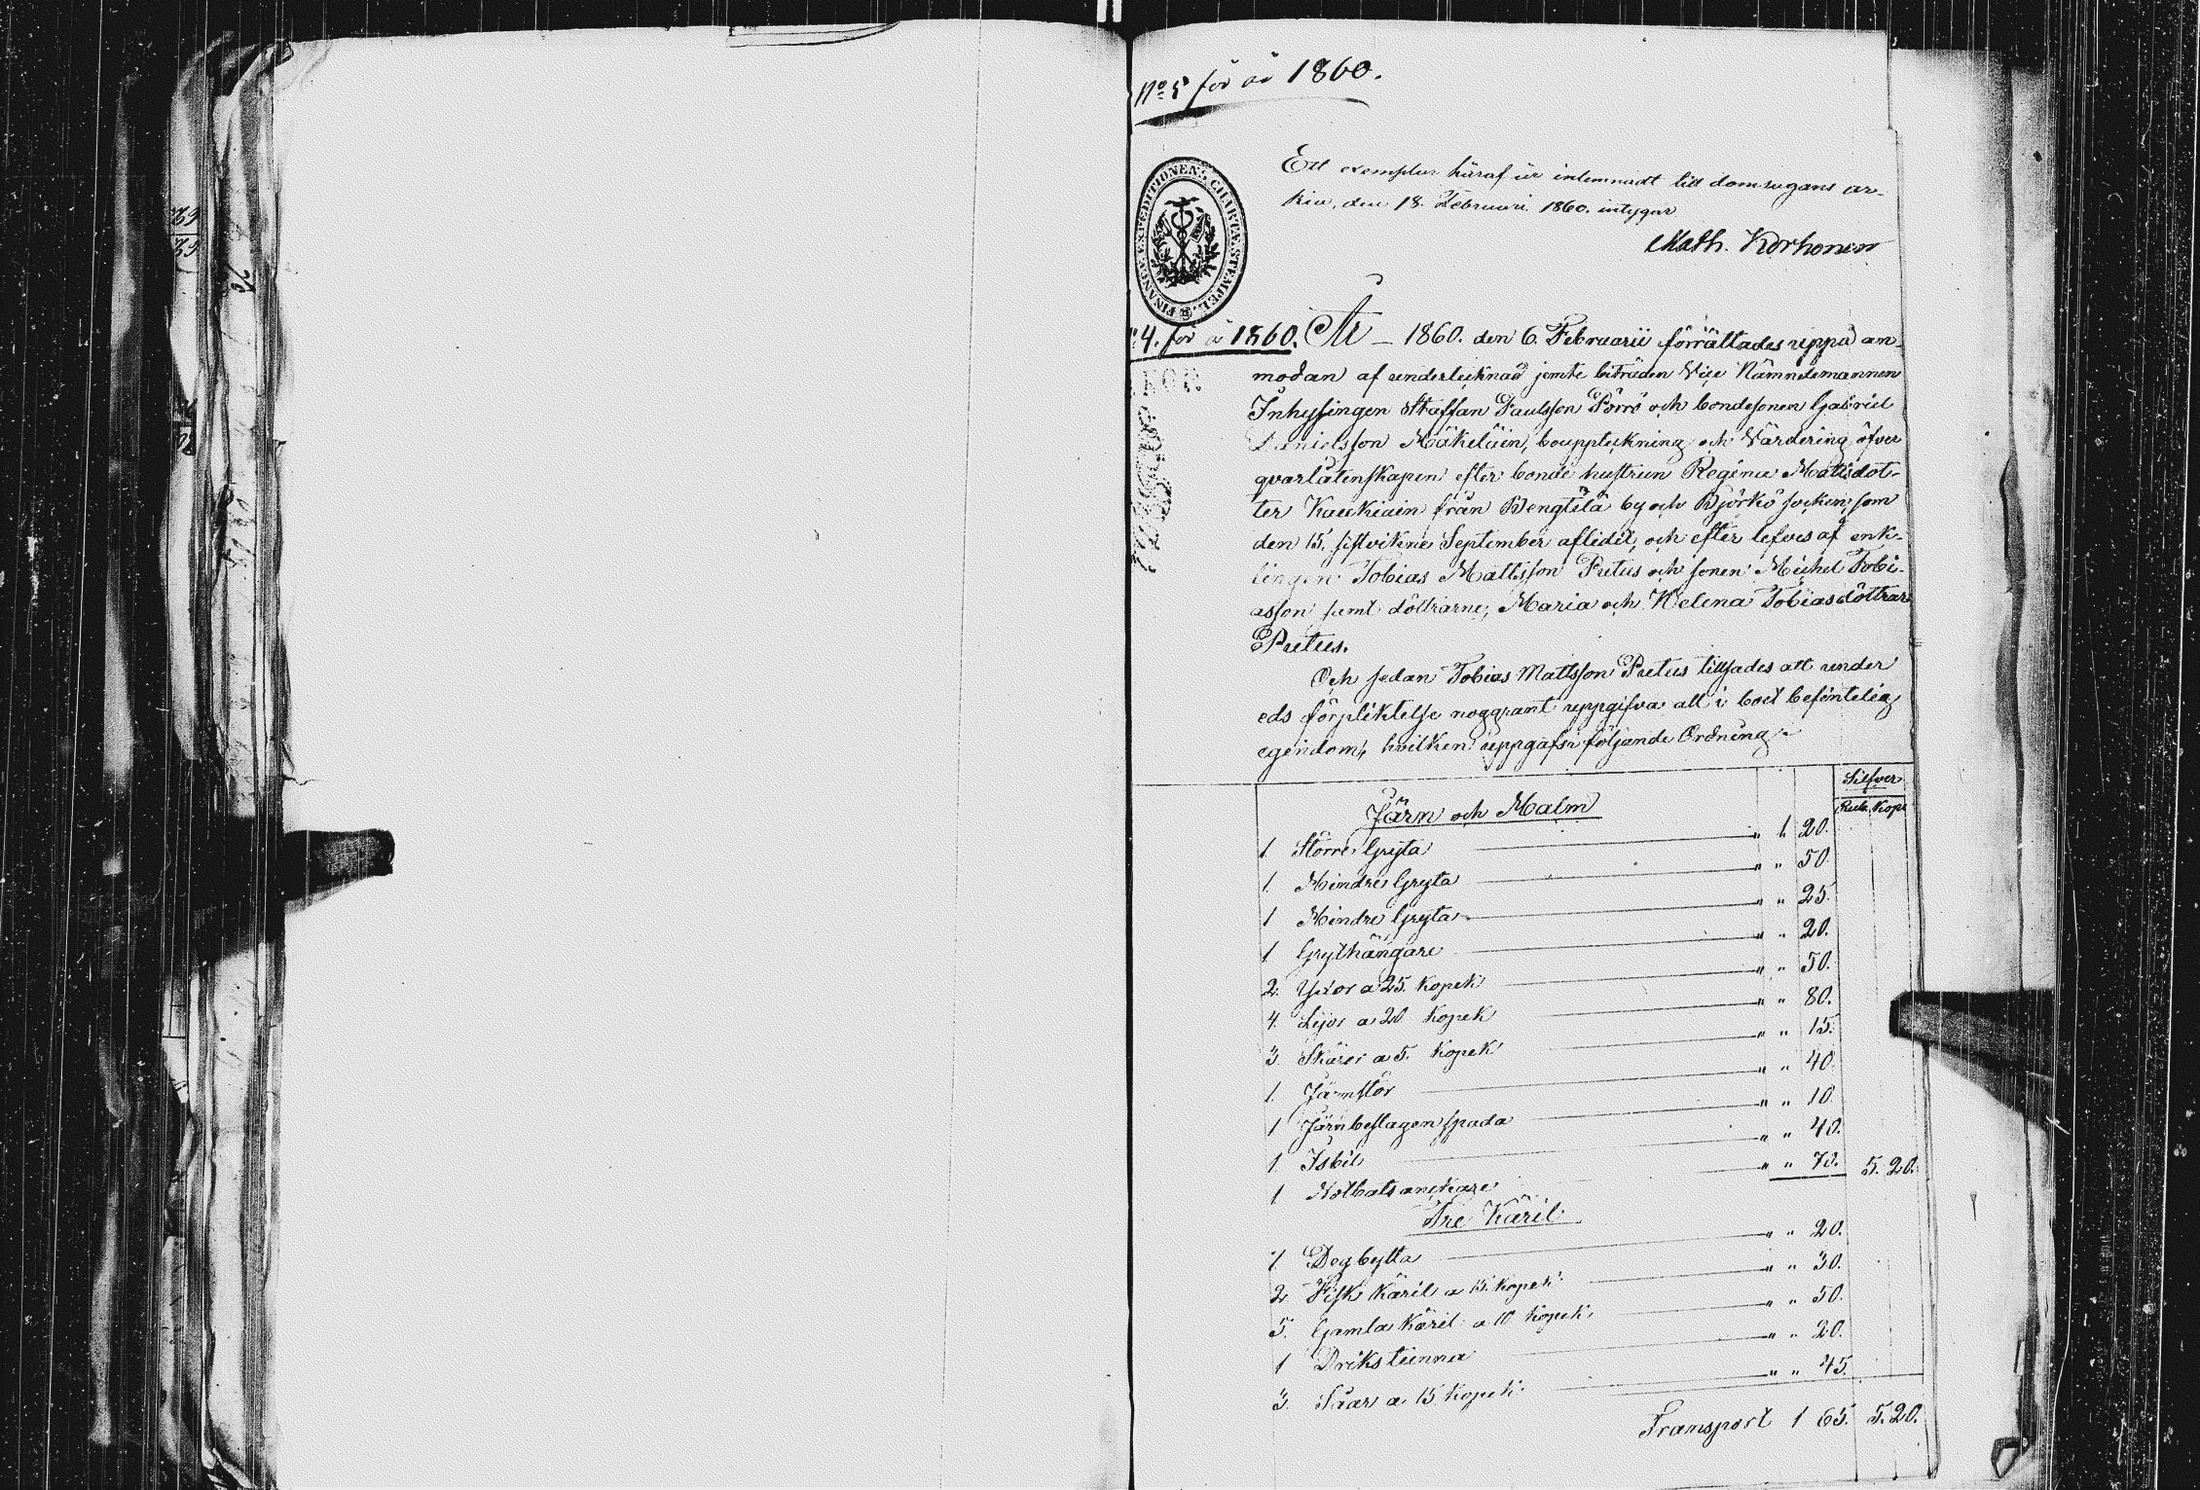 No 5 för år 1860.
Ett exemplar häraf är inlemnadt till domsagans ar-
kiv, den 18. Februari 1860. intygar
Math. Korhonen
FINANCE EXPEDITIONENS CHARTÆ STEMPEL
4. för å 1860. År - 1860. den 6. Februarii förrättades uppå an-
modan af undertecknad jemte biträden Vice Nämndemannen
Inhysingen Staffan Paulsson Pörrö och bondesonen Gabriel
Danielsson Mäkeläin, bouppteckning och Värdering öfver
qvarlåtenskapen efter bonde hustrun Regina Mattsdot-
ter Kaukiain från Bengtilä by och Björkö socken, som
den 15. sistvikne September aflidit, och efter lefves af enk-
lingen Tobias Mattsson Pietus och sonen Michel Tobi-
asson samt döttrarne, Maria och Helena Tobiasdöttrar
Pietus.
Och sedan Tobias Mattsson Pietus tillsades att under
eds förpliktelse noggrant uppgifva allt i boet befintelig
egendom, hvilken uppgafs i följande Ordning
Silfver
Rub. Kop
Järn och Malm
1 Större Gryta " 1. 20.
1. Mindre Gryta " " 50.
1 Mindre Gryta " " 25.
1 Grythängare " " 20.
2. Yxor a 25. Kopek " " 50.
4. Lijor a 20 Kopek " " 80.
3. Skäror a 5. Kopek " " 15.
1. Järnstör " " 40
1 Järnbeslagen spada " " 10.
1. Isbil " " 40.
1 Notbåts anckare " " 70. 5. 20.
Tre Käril
1 Degbytta " " 20.
2 Fisk Käril a 15. Kopek " " 30.
5. Gamla Käril a 10 Kopek " " 50.
1 Drikstunna " " 20.
3. Såar a 15 Kopek " " 45.
Transport 1 65. 5. 20.